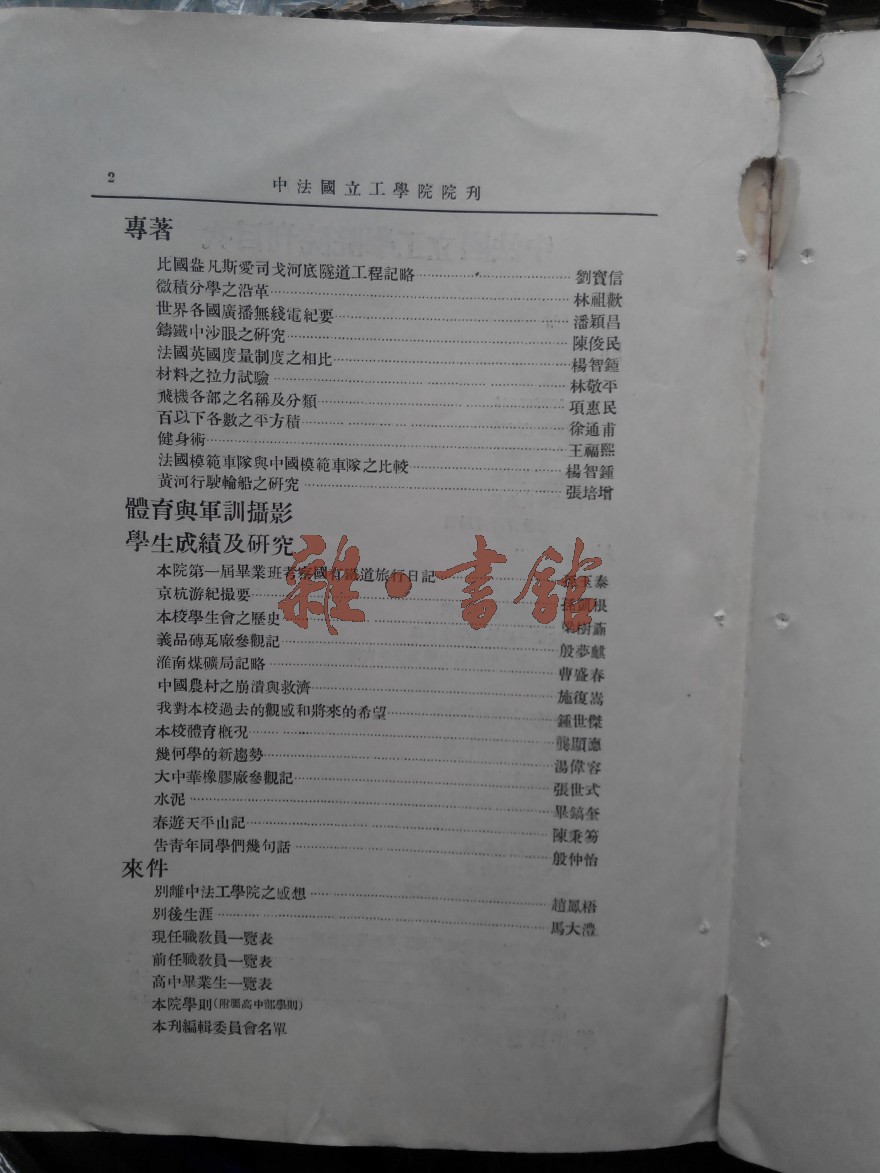 2
中法國立工學院院刊
專著
比國盎凡斯愛司戈河底隧道工程記略 劉寶信
微積分學之沿革 林祖歡
世界各國廣播無綫電紀要 潘穎昌
鑄鐵中沙眼之研究 陳俊民
法國英國度量制度之相比 楊智鍾
材料之拉力試驗 林敬平
飛機各部之名稱及分類 項惠民
百以下各數之平方積 徐通甫
健身術 王福熙
法國模範車隊與中國模範車隊之比較 楊智鍾
黃河行駛輪船之研究 張培增
體育與軍訓攝影
學生成績及研究
本院第一屆畢業班考察國有鐵道旅行日記 泰
京杭游紀撮要 根
本校學生會之歷史 樹
義品磚瓦廠參觀記 殷夢麒
淮南煤礦局記略 曹盛春
中國農村之崩潰與救濟 施復嵩
我對本校過去的觀感和將來的希望 鍾世傑
本校體育概況 龔顯應
幾何學的新趨勢 湯偉容
大中華橡膠廠參觀記 張世式
水泥 畢鎬奎
春遊天平山記 陳秉芴
告青年同學們幾句話 殷仲怡
來件
別離中法工學院之感想 趙鳳梧
別後生涯 馬大澧
現任職敎員一覽表
前任職敎員一覽表
高中畢業生一覽表
本院學則(附屬高中部學則)
本刊編輯委員會名單
雜·書館